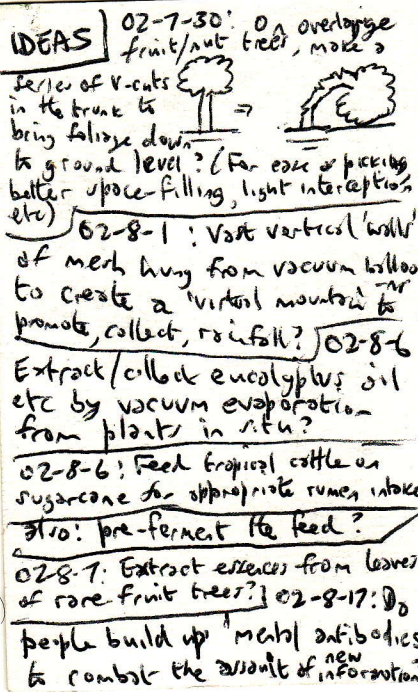 IDEAS
02-7-30: On overlarge
fruit/nut trees, make a
series of V-cuts
in the trunk to
bring foliage down
to ground level? (For ease of picking
better space-filling, light interception
etc)
02-8-1: Vast vertical 'walls'
of mesh hung from vacuum balloons
to create a 'virtual mountain' to
promote, collect, rainfall?
02-8-6
Extract/collect eucalyptus oil
etc by vacuum evaporation
from plants in situ?
02-8-6: Feed tropical cattle on
sugarcane for appropriate rumen intake
also: pre-ferment the feed?
02-8-7: Extract essences from leaves
of rare fruit trees?
02-8-17: Do
people build up 'mental antibodies
to combat the assault of new information